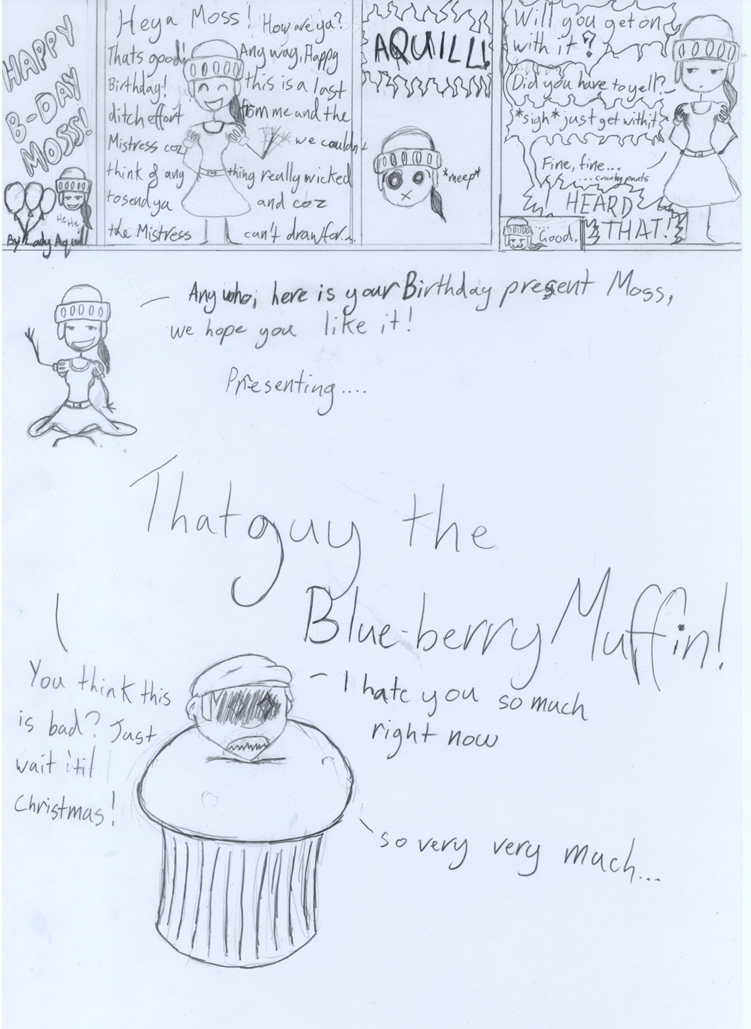 HAPPY
B-DAY
MOSS!
He He
By Lady Aquill
Heya Moss! How are ya?
Thats good! Any way, Happy
Birthday! this is a last
ditch effort from me and the
Mistress coz we couldn't
think of any thing really wicked
to send ya and coz
the Mistress can't draw for...
AQUILL!
*meep*
Will you get on
with it?
Did you have to yell?
*sigh* just get with it
Fine, fine...
...cranky pants
I HEARD
THAT!
...Good.
Any who, here is your Birthday present Moss,
we hope you like it!
Presenting....
That guy the
Blue-berry Muffin!
You think this
is bad? Just
wait 'til
Christmas!
I hate you so much
right now
so very very much...